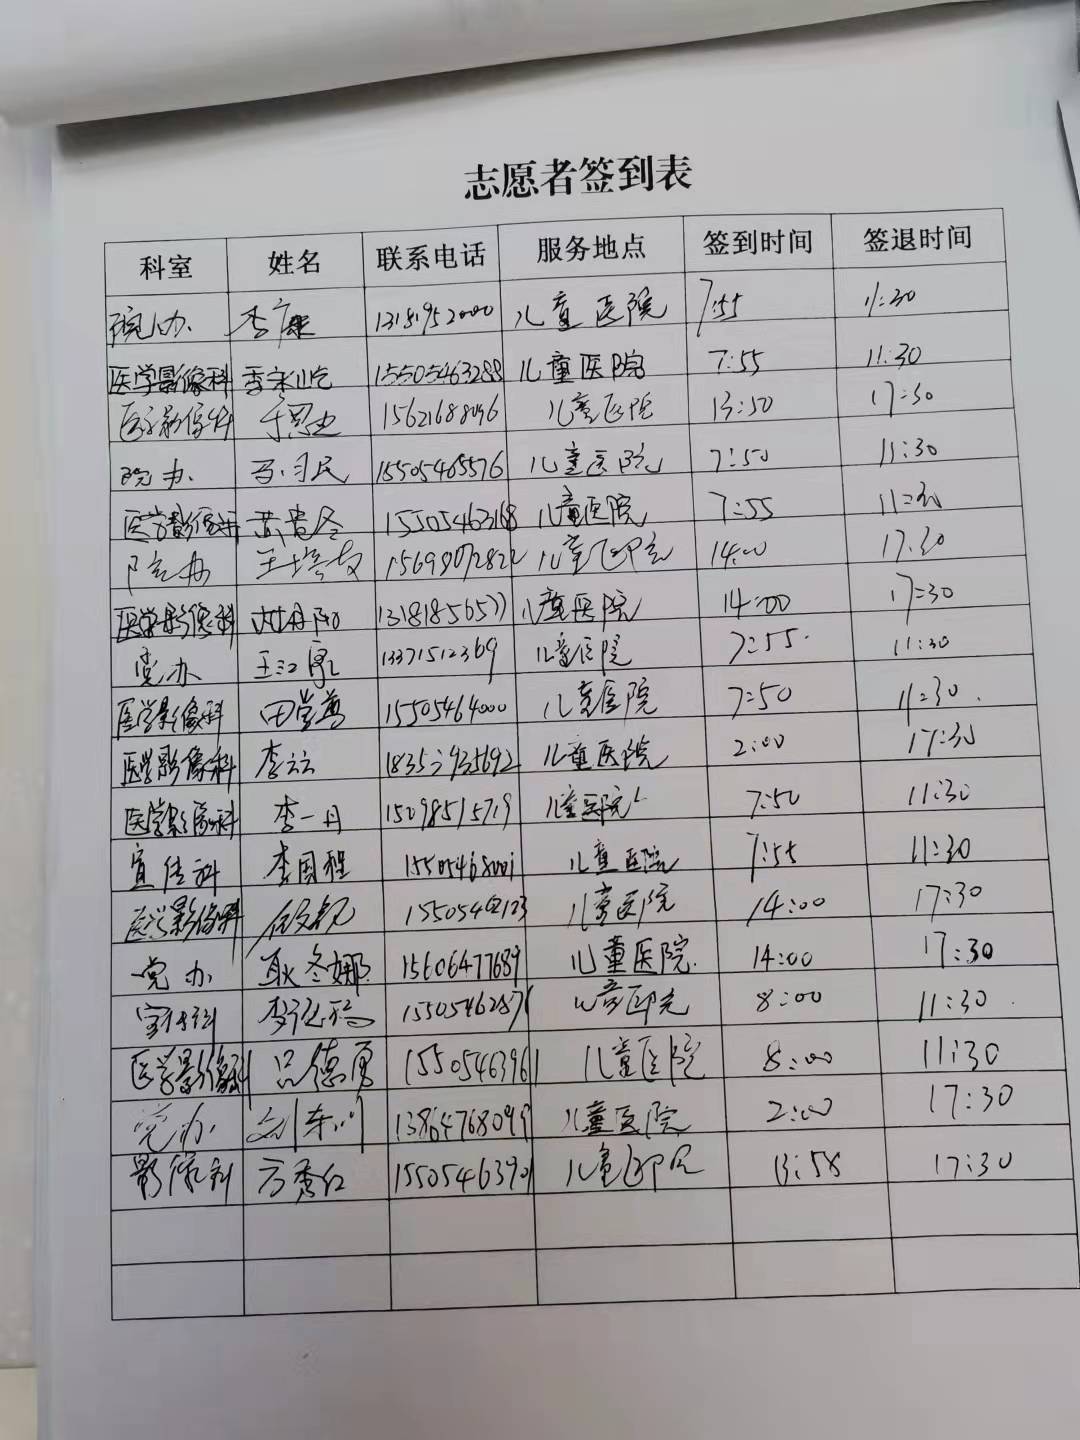 志愿者签到表
科室 姓名 联系电话 服务地点 签到时间 签退时间
院办 李康 儿童医院 7:55 11:30
医学影像科 李永屹 15505463288 儿童医院 7:55 11:30
医学影像科 15621688096 儿童医院 13:50 17:30
院办 15505465576 儿童医院 7:50 11:30
医学影像科 15505463168 儿童医院 7:55 11:30
院办 王培友 儿童医院 14:00 17:30
医学影像科 儿童医院 14:00 17:30
党办 13371512369 儿童医院 7:55 11:30
医学影像科 15505464000 儿童医院 7:50 11:30
医学影像科 李云 儿童医院 2:00 17:30
医学影像科 李一丹 15098515719 儿童医院 7:50 11:30
宣传科 李国程 15505468001 儿童医院 7:55 11:30
医学影像科 儿童医院 14:00 17:30
党办 耿冬娜 15606477689 儿童医院 14:00 17:30
宣传科 15505462871 儿童医院 8:00 11:30
医学影像科 吕德勇 15505463961 儿童医院 8:00 11:30
党办 刘东川 13864768099 儿童医院 2:00 17:30
影像科 方秀红 15505463901 儿童医院 13:58 17:30